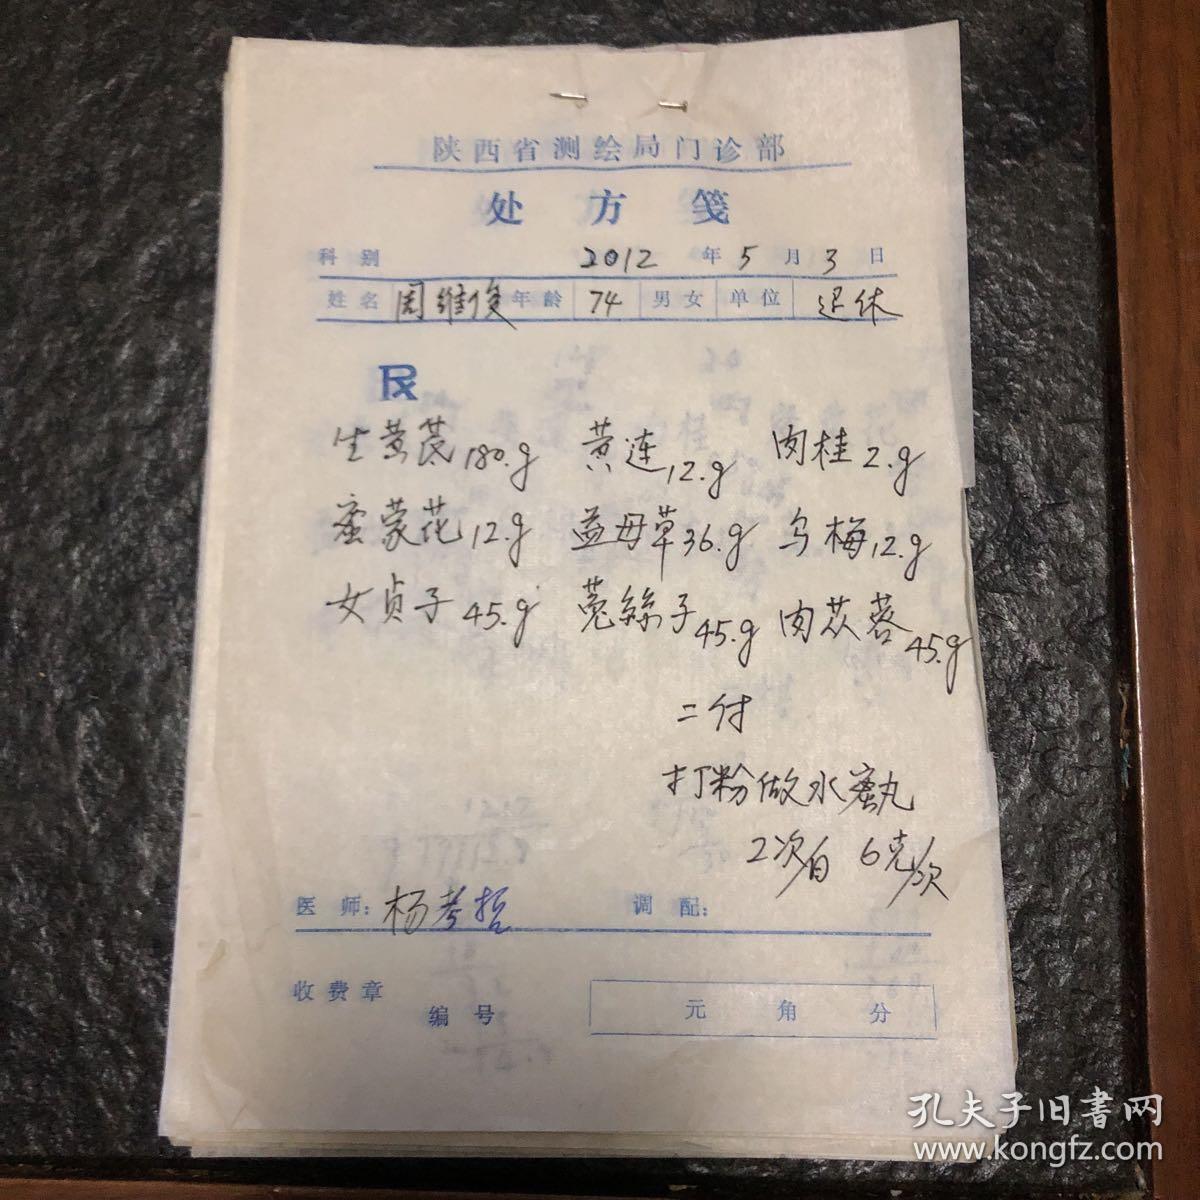 陕西省测绘局门诊部
处方笺
科别 2012 年 5 月 3 日
姓名 周维俊 年龄 74 男女 单位 退休
Rx
生黄芪180.g 黄连12.g 肉桂2.g
蜜蒙花12.g 益母草36.g 乌梅12.g
女贞子45.g 菟絲子45.g 肉苁蓉45.g
二付
打粉做水蜜丸
2次/日 6克/次
医师: 杨孝哲 调配:
收费章
编号 元 角 分
孔夫子旧書网
www.kongfz.com